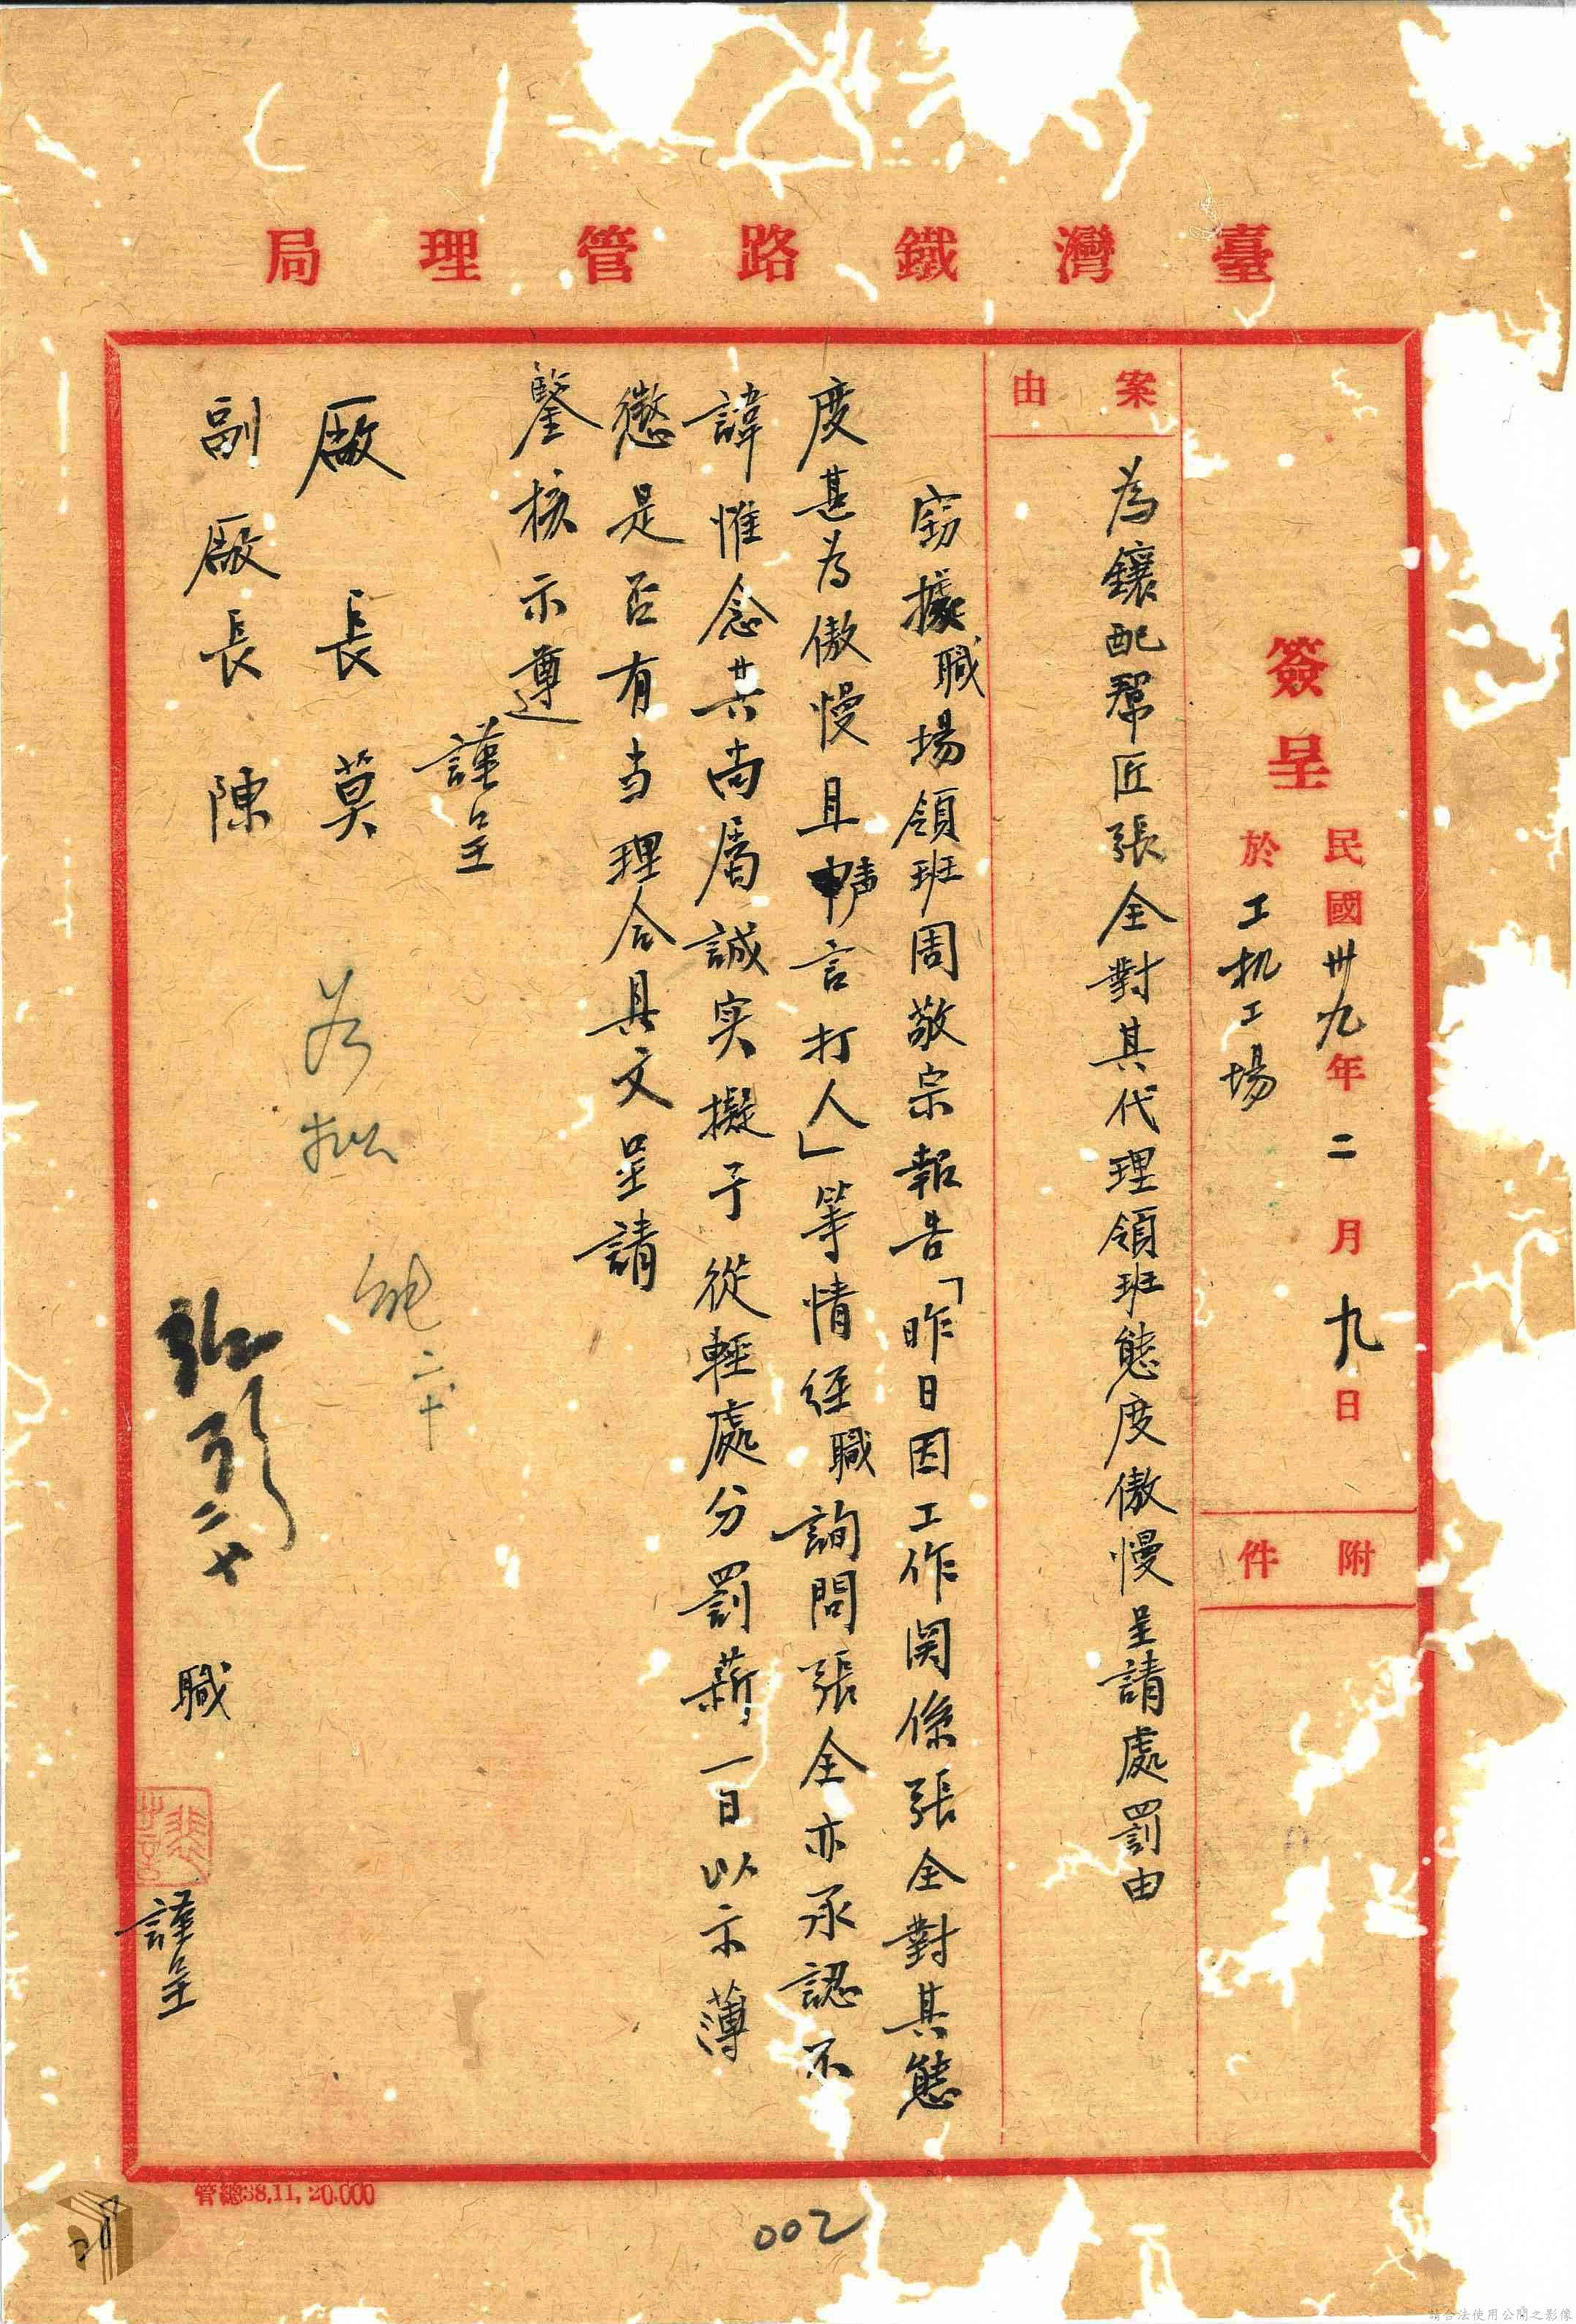 臺灣鐵路管理局
簽呈
民國卅九年二月九日
於工机工場
附件
案由
為鑲配幫匠張全對其代理領班態度傲慢呈請處罰由
竊據職場領班周敬宗報告「昨日因工作関係張全對其態
度甚為傲慢且声言打人」等情經職詢問張全亦承認不
諱惟念其尚屬誠实擬予從輕處分罰薪一日以示薄
懲是否有当理合具文呈請
鑒核示遵
謹呈
廠長莫
副廠長陳
二十
職
謹呈
管總38.11, 20.000
002
請合法使用公開之影像